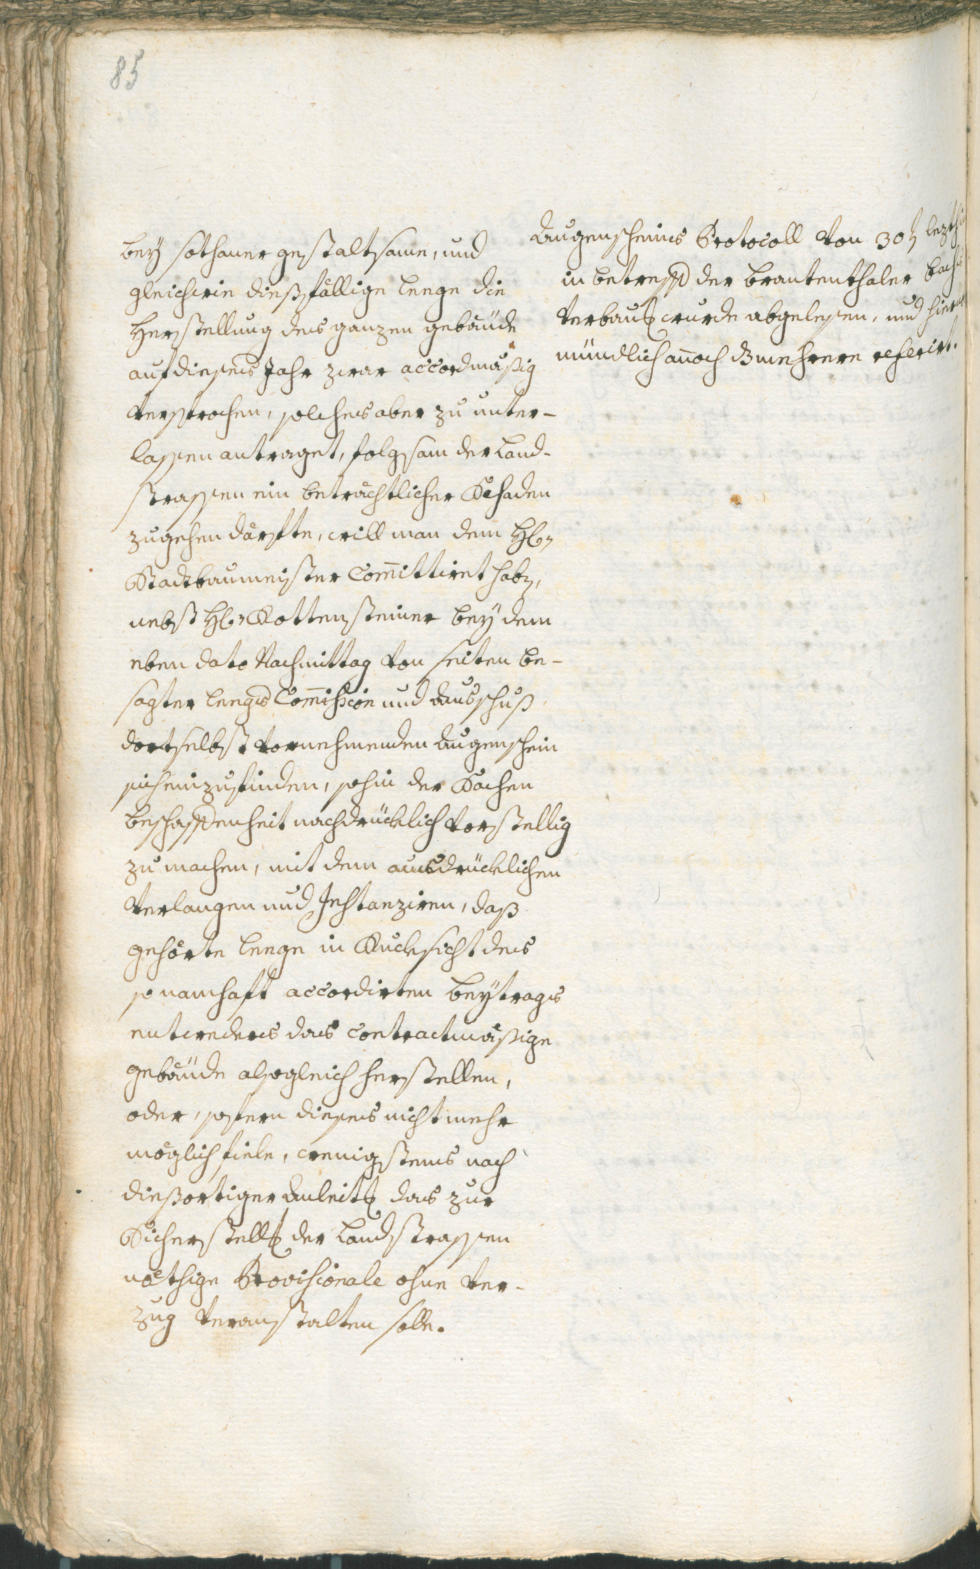 85
bey sothaner gestaltsame, und
gleichwie dießfällige Leege die
Herstellung des ganzen gebäude
auf dieses Jahr zwar accordmäßig
versprochen, solches aber zu unter-
lassen antraget, folgsam der Land-
strassen ein beträchtlicher Schaden
zugehen därfte, will man dem Hl:
Stadtbaumeister Com̄ittiret hab,
nebst Hl: Rottensteiner bey dem
eben dato Nachmittag von seiten be-
sagter Leegs Com̄ission und Ausschuß
dortselbst vornehmenden Augenschein
sich einzufinden, sohin der Sachen
beschaffenheit nachdrücklich vorstellig
zu machen, mit dem ausdrücklichen
Verlangen und Instanziren, daß
gehörte Leege in Rucksicht des
so namhaft accordirten beytrags
entweders das contractmäßige
gebäude alsogleich herstellen,
oder, sofern dieses nicht mehr
möglich fiele, wenigstens nach
dießortiger Anleit das zur
Sicherstell der Landstrassen
nöthige Provisionale ohne Ver-
zug veranstalten solle.
Augenscheins Protocoll von 30
in betreff der brantenthaler
Verbau wurde abgelesen, und
mündlich an̄och Bmehrere referirt.